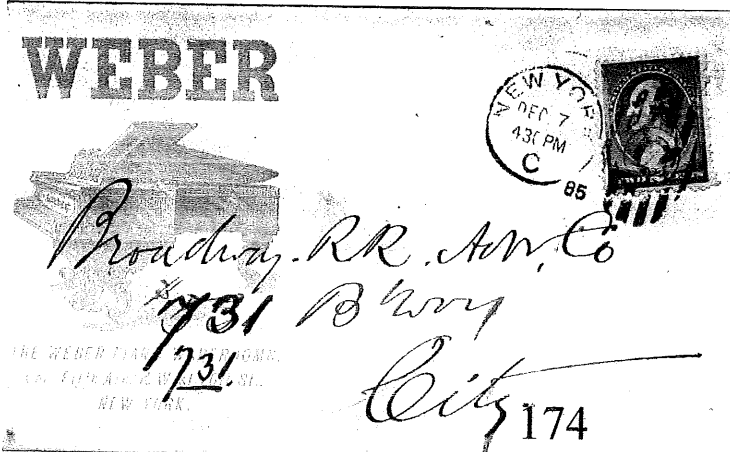 WEBER
NEW YORK
DEC 7
430 PM
C
85
Broadway. RR. Adv. Co
731 B'way
731.
THE WEBER PIANO WAREROOMS,
NEW YORK.
City
174